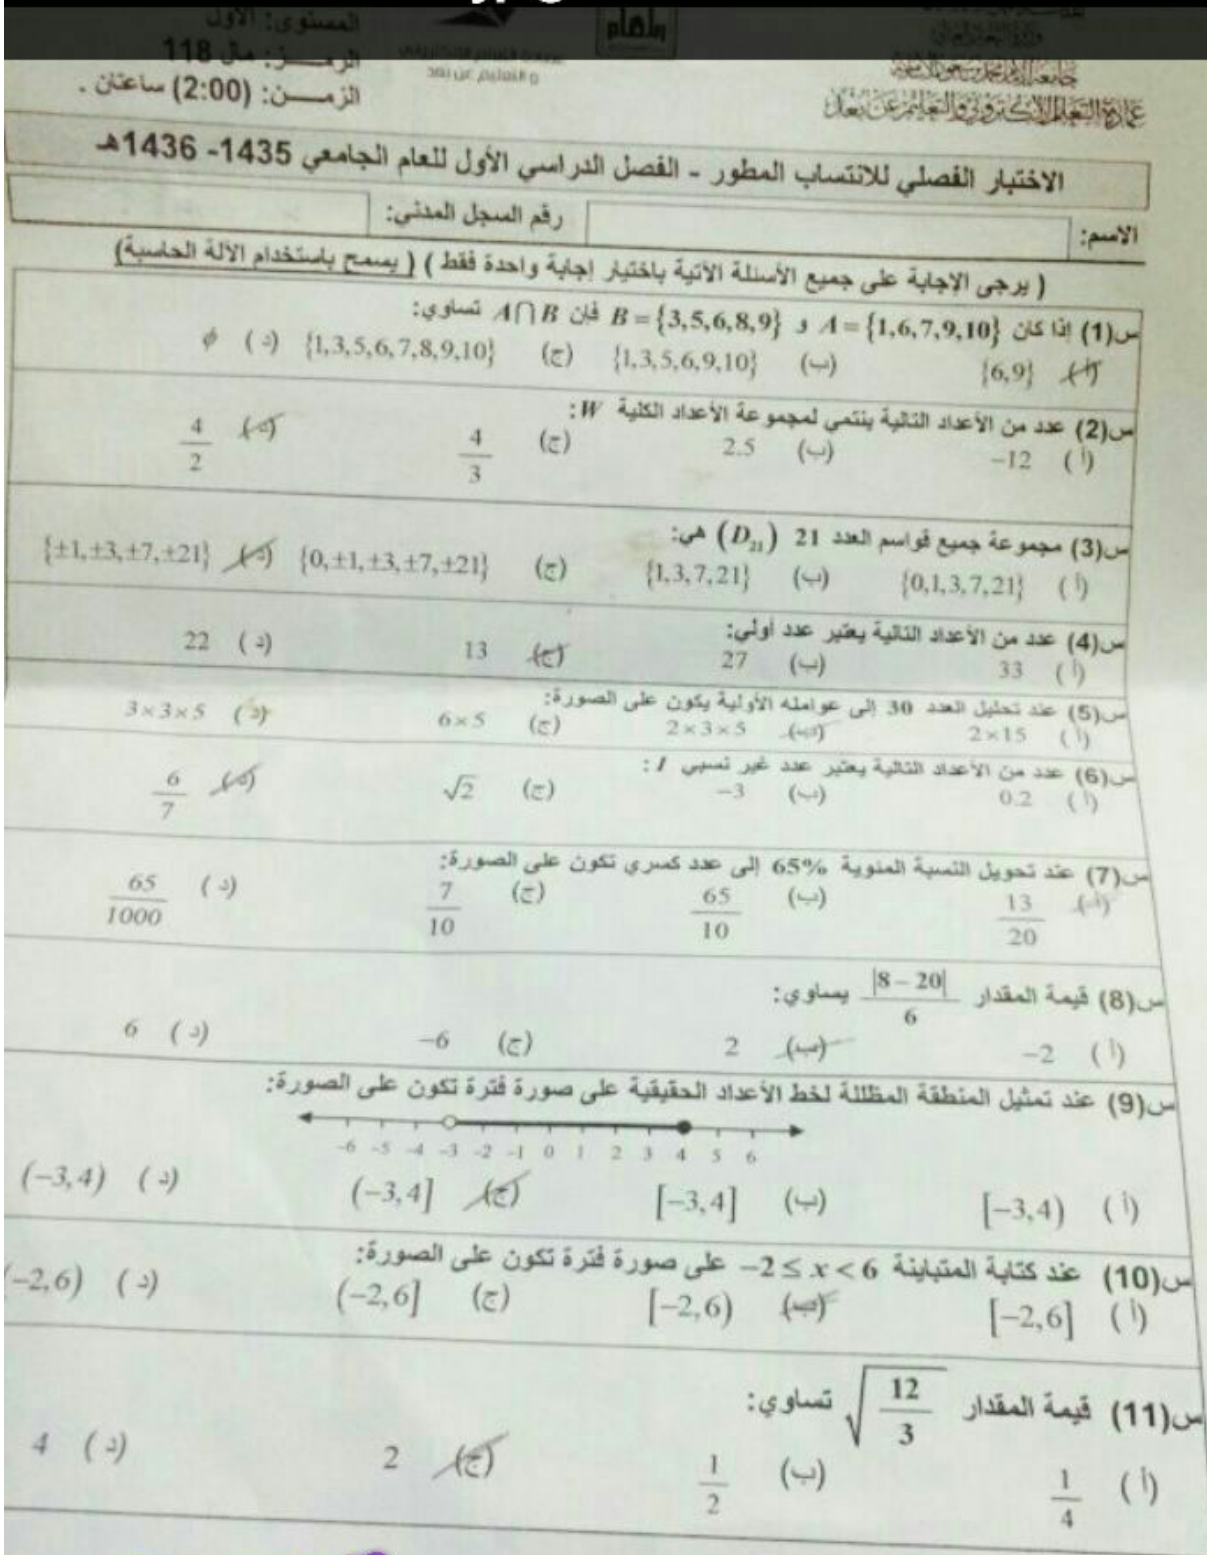 المستوى: الأول
الرمـــز: مال 118
الزمـــن: (2:00) ساعتان .
والتعليم عن بعد
عمادة التعلم الإلكتروني والتعليم عن بعد
الاختبار الفصلي للانتساب المطور - الفصل الدراسي الأول للعام الجامعي 1435- 1436هـ
الاسم: رقم السجل المدني:
( يرجى الإجابة على جميع الأسئلة الآتية باختيار إجابة واحدة فقط ) ( يسمح باستخدام الآلة الحاسبة)
س(1) إذا كان A={1,6,7,9,10} و B={3,5,6,8,9} فإن A∩B تساوي:
(أ) {6,9} (ب) {1,3,5,6,9,10} (ج) {1,3,5,6,7,8,9,10} (د) ϕ
س(2) عدد من الأعداد التالية ينتمي لمجموعة الأعداد الكلية W:
(أ) −12 (ب) 2.5 (ج) 4/3 (د) 4/2
س(3) مجموعة جميع قواسم العدد 21 (D₂₁) هي:
(أ) {0,1,3,7,21} (ب) {1,3,7,21} (ج) {0,±1,±3,±7,±21} (د) {±1,±3,±7,±21}
س(4) عدد من الأعداد التالية يعتبر عدد أولي:
(أ) 33 (ب) 27 (ج) 13 (د) 22
س(5) عند تحليل العدد 30 إلى عوامله الأولية يكون على الصورة:
(أ) 2×15 (ب) 2×3×5 (ج) 6×5 (د) 3×3×5
س(6) عدد من الأعداد التالية يعتبر عدد غير نسبي I:
(أ) 0.2 (ب) −3 (ج) √2 (د) 6/7
س(7) عند تحويل النسبة المئوية 65% إلى عدد كسري تكون على الصورة:
(أ) 13/20 (ب) 65/10 (ج) 7/10 (د) 65/1000
س(8) قيمة المقدار |8−20|/6 يساوي:
(أ) −2 (ب) 2 (ج) −6 (د) 6
س(9) عند تمثيل المنطقة المظللة لخط الأعداد الحقيقية على صورة فترة تكون على الصورة:
-6 -5 -4 -3 -2 -1 0 1 2 3 4 5 6
(أ) [−3,4) (ب) [−3,4] (ج) (−3,4] (د) (−3,4)
س(10) عند كتابة المتباينة −2≤x<6 على صورة فترة تكون على الصورة:
(أ) [−2,6] (ب) [−2,6) (ج) (−2,6] (د) (−2,6)
س(11) قيمة المقدار √(12/3) تساوي:
(أ) 1/4 (ب) 1/2 (ج) 2 (د) 4